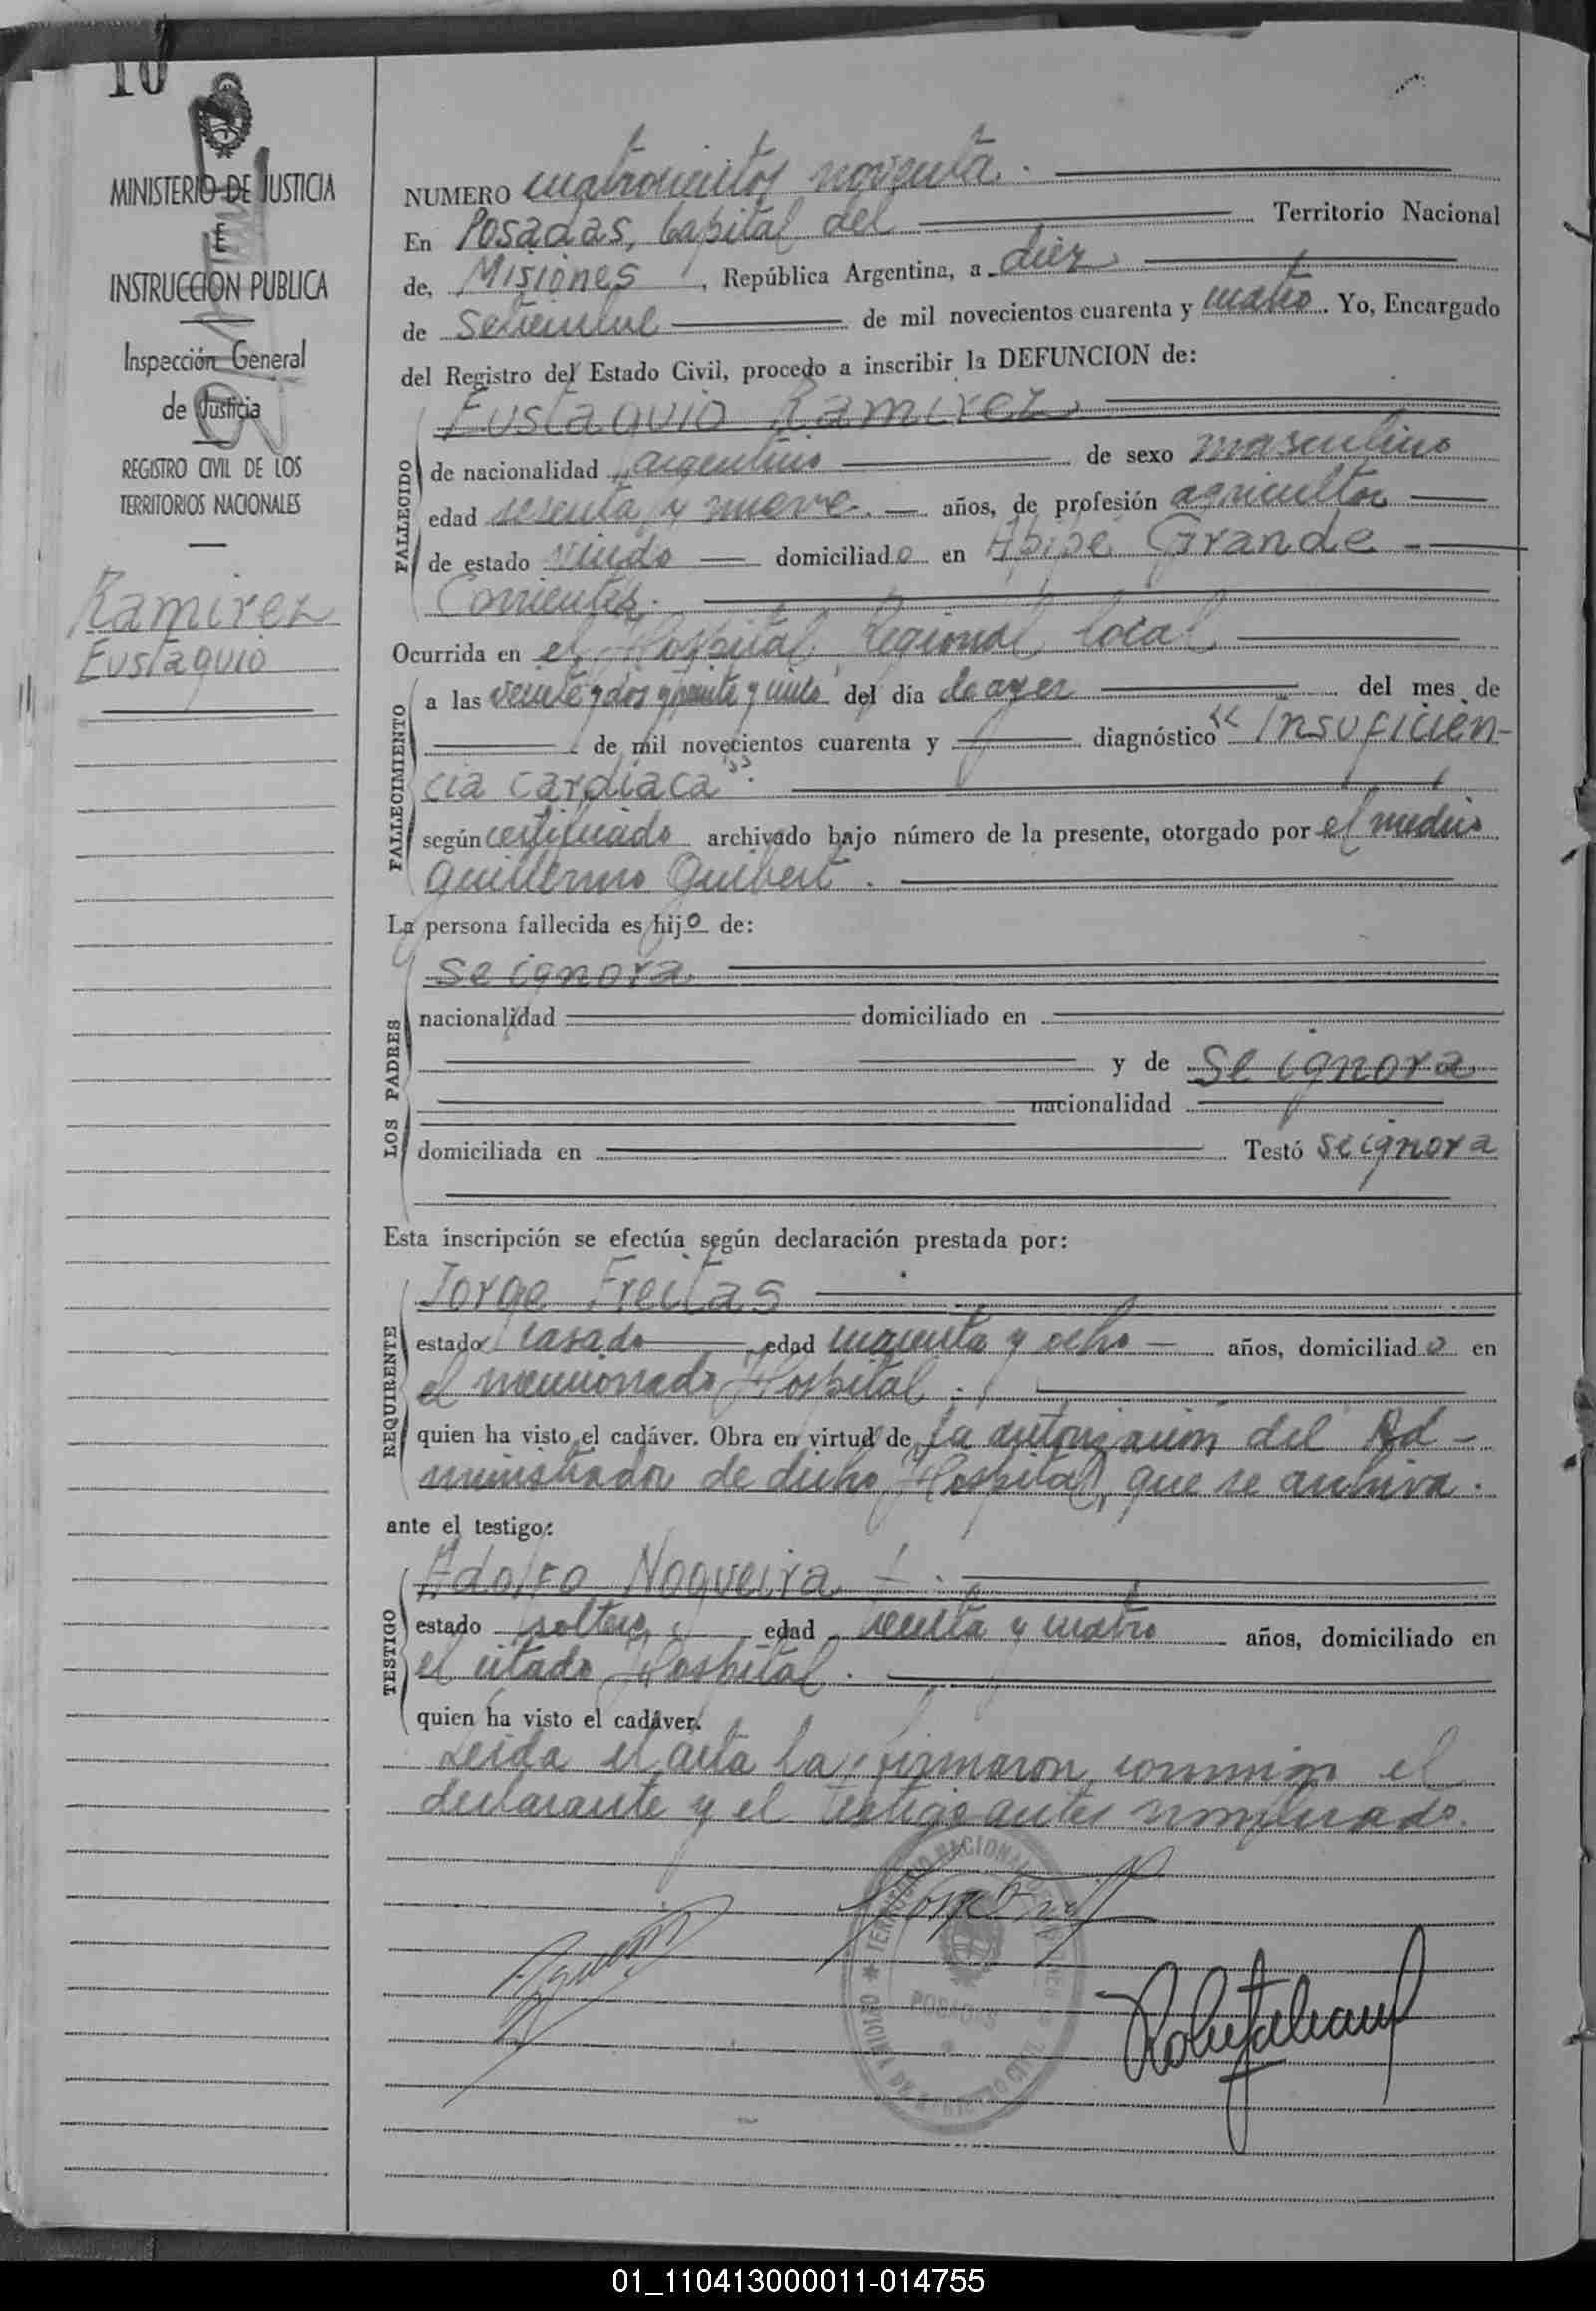 10
MINISTERIO DE JUSTICIA
E
INSTRUCCION PUBLICA
Inspección General
de Justicia
REGISTRO CIVIL DE LOS
TERRITORIOS NACIONALES
Ramirez
Eustaquio
NUMERO cuatrocientos noventa.
En Posadas, Capital del Territorio Nacional
de, Misiones, República Argentina, a diez
de Setiembre de mil novecientos cuarenta y cuatro. Yo, Encargado
del Registro del Estado Civil, procedo a inscribir la DEFUNCION de:
FALLECIDO
Eustaquio Ramirez
de nacionalidad argentino de sexo masculino
edad sesenta y nueve. años, de profesión agricultor
de estado viudo domiciliado en Apipé Grande -
Corrientes.
Ocurrida en el Hospital Regional local
FALLECIMIENTO
a las veinte y dos y treinta y cinco del día de ayer del mes de
de mil novecientos cuarenta y diagnóstico "Insuficien-
cia cardiaca".
según certificado archivado bajo número de la presente, otorgado por el médico
Guillermo Guibert.
La persona fallecida es hijo de:
LOS PADRES
Se ignora
nacionalidad domiciliado en
y de Se ignora
nacionalidad
domiciliada en Testó se ignora
Esta inscripción se efectúa según declaración prestada por:
REQUIRENTE
Jorge Freitas
estado casado edad cuarenta y ocho años, domiciliado en
el mencionado Hospital.
quien ha visto el cadáver. Obra en virtud de la autorización del Ad-
ministrador de dicho Hospital, que se archiva.
ante el testigo:
TESTIGO
Adolfo Nogueira
estado soltero edad treinta y cuatro años, domiciliado en
el citado Hospital.
quien ha visto el cadáver.
Leida el acta la firmaron conmigo el
declarante y el testigo antes nombrado.
TERRITORIO NACIONAL
POSADAS
01_110413000011-014755